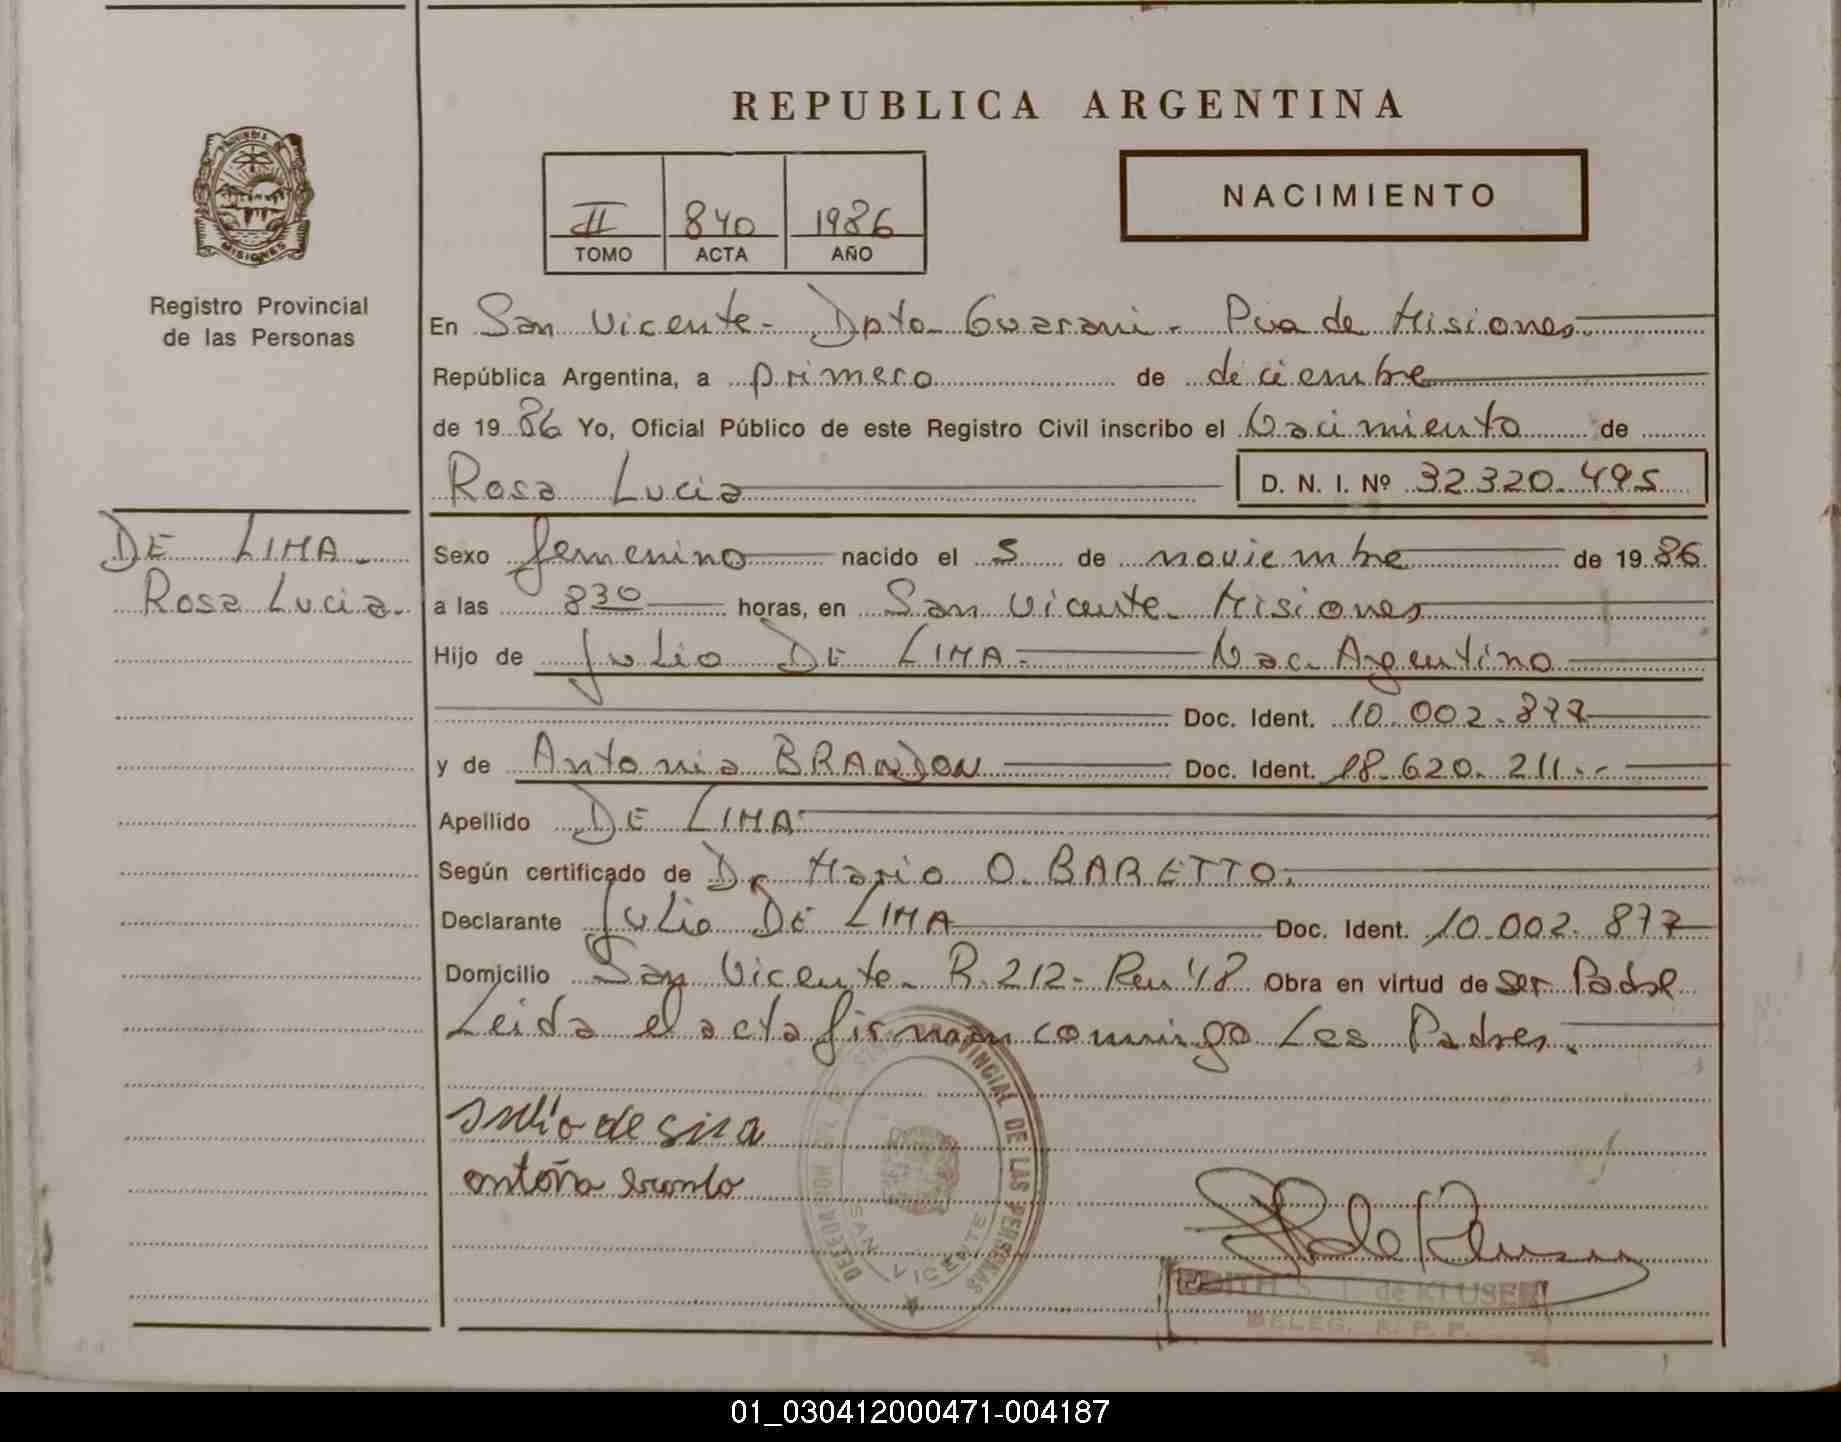 REPUBLICA ARGENTINA
PROVINCIA
MISIONES
Registro Provincial
de las Personas
II 840 1986
TOMO ACTA AÑO
NACIMIENTO
En San Vicente - Dpto Guarani - Pcia de Misiones
República Argentina, a primero de diciembre
de 1986 Yo, Oficial Público de este Registro Civil inscribo el Nacimiento de
Rosa Lucia D. N. I. Nº 32.320.495
DE LIMA
Rosa Lucia.
Sexo femenino nacido el 5 de noviembre de 1986
a las 830 horas, en San Vicente - Misiones
Hijo de Julio DE LIMA - Nac. Argentino
Doc. Ident. 10.002.877
y de Antonia BRANDON Doc. Ident. 18.620.211.-
Apellido DE LIMA
Según certificado de Dr Mario O. BARETTO.
Declarante Julio DE LIMA Doc. Ident. 10.002.877
Domicilio San Vicente - R. 212 - Obra en virtud de ser Padre
Leida el acta firman conmigo Los Padres.
Julio de
DELEGADA PROVINCIAL DE LAS PERSONAS
SAN VICENTE
EDITH S. T. de KLUSER
DELEG. R. P. P.
01_030412000471-004187